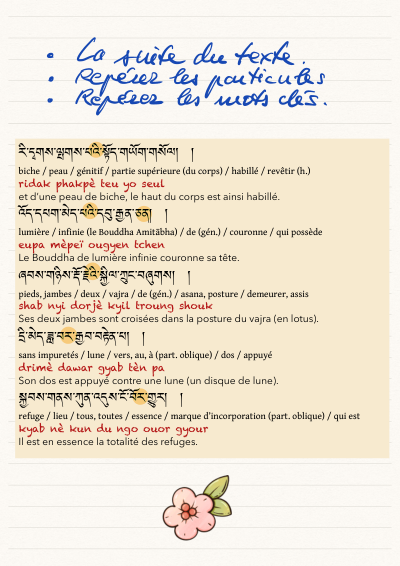 • La suite du texte.
• Repérer les particules
• Repérer les mots clés.
རི་དྭགས་ལྤགས་པའི་སྟོད་གཡོག་གསོལ། །
biche / peau / génitif / partie supérieure (du corps) / habillé / revêtir (h.)
ridak phakpè teu yo seul
et d'une peau de biche, le haut du corps est ainsi habillé.
འོད་དཔག་མེད་པའི་དབུ་རྒྱན་ཅན། །
lumière / infinie (le Bouddha Amitābha) / de (gén.) / couronne / qui possède
eupa mèpeï ougyen tchen
Le Bouddha de lumière infinie couronne sa tête.
ཞབས་གཉིས་རྡོ་རྗེའི་སྐྱིལ་ཀྲུང་བཞུགས། །
pieds, jambes / deux / vajra / de (gén.) / asana, posture / demeurer, assis
shab nyi dorjè kyil troung shouk
Ses deux jambes sont croisées dans la posture du vajra (en lotus).
དྲི་མེད་ཟླ་བར་རྒྱབ་བརྟེན་པ། །
sans impuretés / lune / vers, au, à (part. oblique) / dos / appuyé
drimè dawar gyab tèn pa
Son dos est appuyé contre une lune (un disque de lune).
སྐྱབས་གནས་ཀུན་འདུས་ངོ་བོར་གྱུར། །
refuge / lieu / tous, toutes / essence / marque d'incorporation (part. oblique) / qui est
kyab nè kun du ngo ouor gyour
Il est en essence la totalité des refuges.